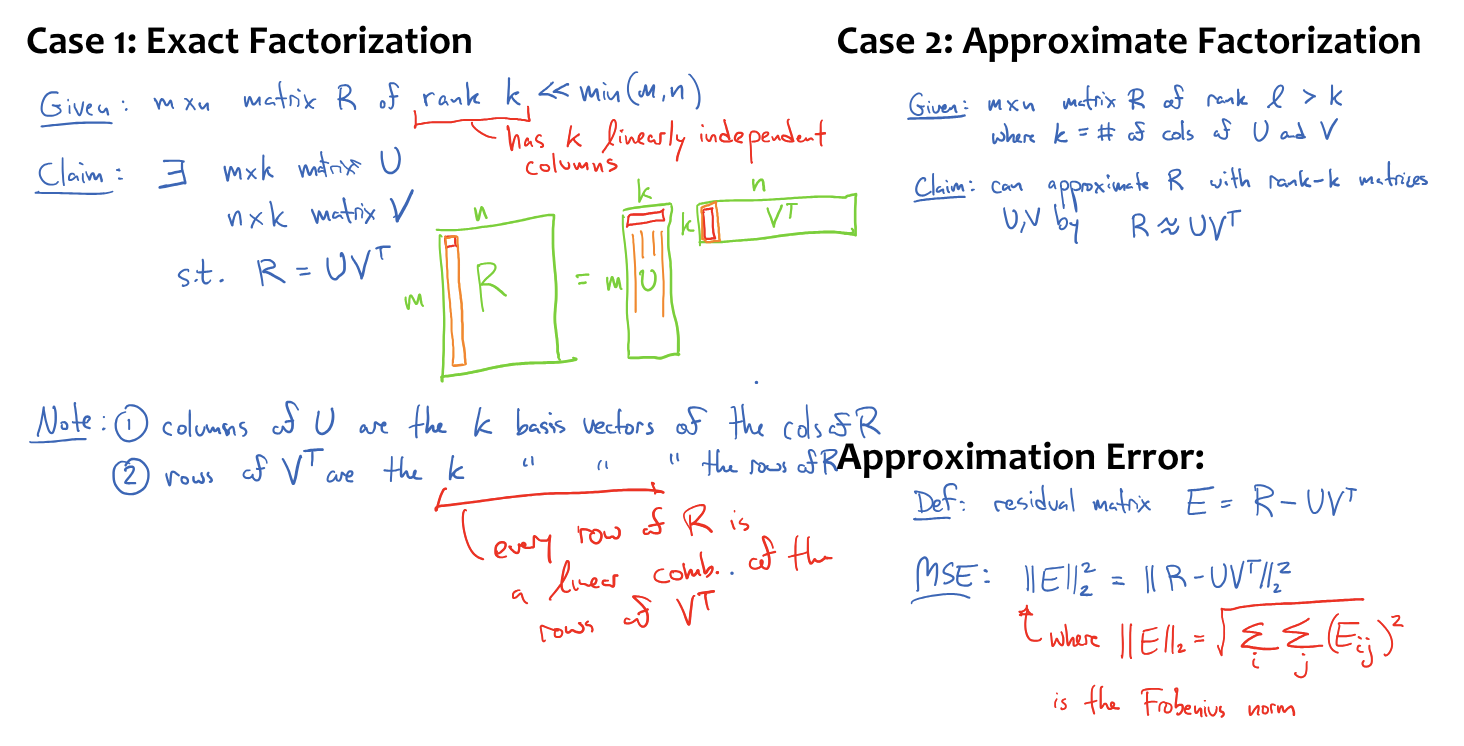 Case 1: Exact Factorization
Given: m×n matrix R of rank k << min(m,n)
has k linearly independent
columns
Claim: ∃ m×k matrix U
n×k matrix V
s.t. R = UVᵀ
n
m
R
=
k
m
U
n
k
Vᵀ
Note: ① columns of U are the k basis vectors of the cols of R
② rows of Vᵀ are the k " " " the rows of R
every row of R is
a linear comb. of the
rows of Vᵀ
Case 2: Approximate Factorization
Given: m×n matrix R of rank l > k
where k = # of cols of U and V
Claim: can approximate R with rank-k matrices
U,V by R ≈ UVᵀ
Approximation Error:
Def: residual matrix E = R - UVᵀ
MSE: ||E||₂² = ||R - UVᵀ||₂²
where ||E||₂ = √ Σᵢ Σⱼ (Eᵢⱼ)²
is the Frobenius norm